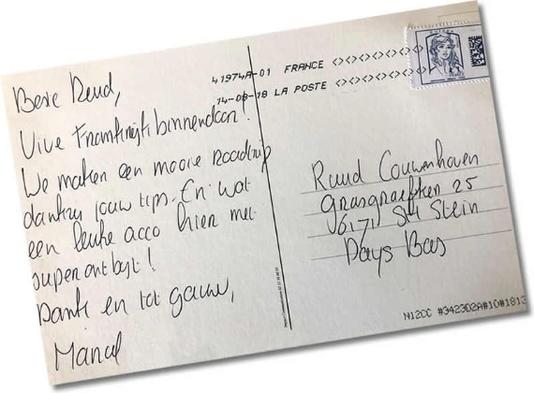 Beste Ruud,
Vive Frankrijk binnendoor!
We maken een mooie roadtrip
dankzij jouw tips. En wat
een leuke acco hier met
super ontbijt!
Dank en tot gauw,
Marcel
41974A-01 FRANCE
14-08-18 LA POSTE
Ruud Couwenhoven
Grasgraaften 25
6171 Stein
Pays Bas
N12CC #3423D2A#10#1813